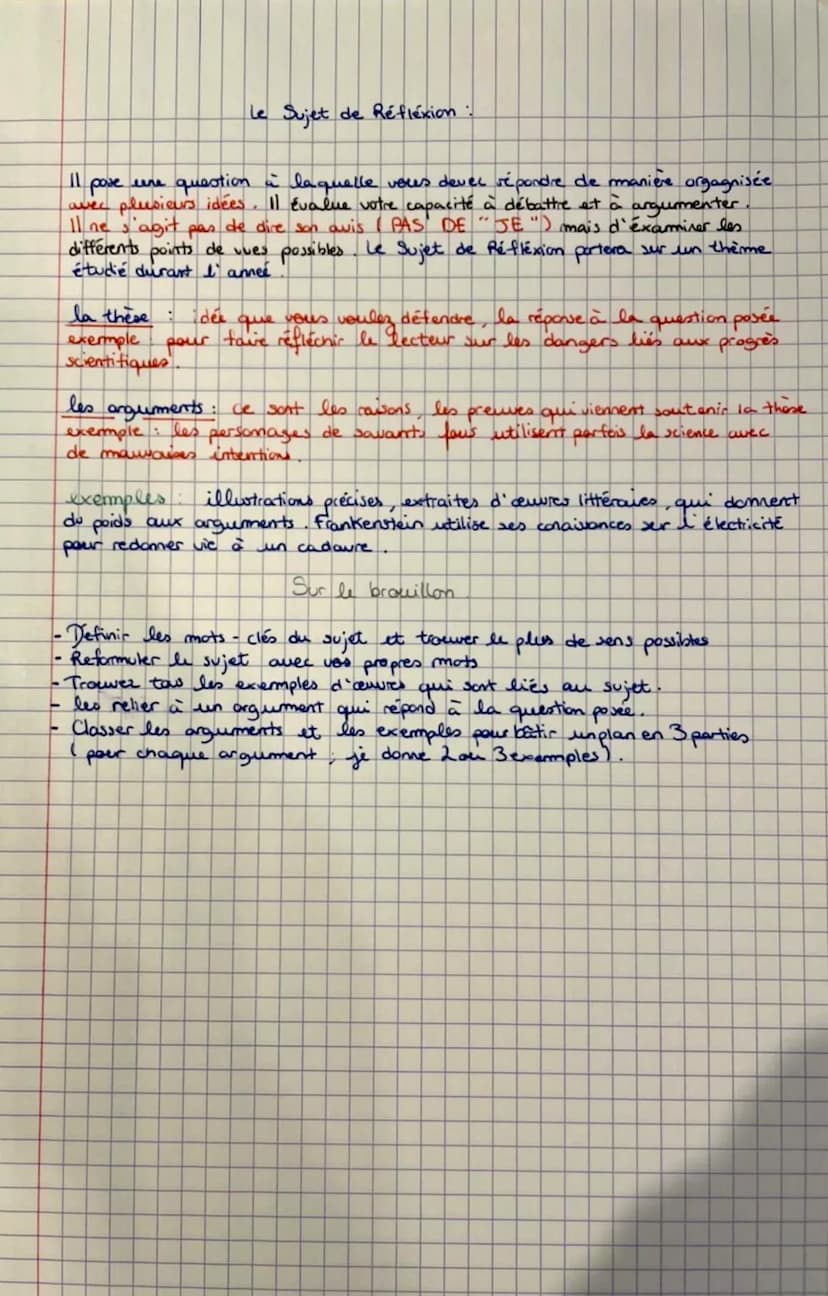 Le Sujet de Réfléxion :
Il pose une question à laquelle vous devez répondre de manière orgagnisée
avec plusieurs idées. Il évalue votre capacité à débattre et à argumenter.
Il ne s'agit pas de dire son avis ( PAS DE " JE ") mais d'éxaminer les
différents points de vues possibles. Le Sujet de Réfléxion portera sur un thème
étudié durant l'anneé.
la thèse : idée que vous voulez défendre, la réponse à la question posée
exemple : pour faire réfléchir le lecteur sur les dangers liés aux progrès
scientifiques.
les arguments : ce sont les raisons, les preuves qui viennent soutenir la thèse
exemple : les personnages de savants fous utilisent parfois la science avec
de mauvaises intentions.
exemples : illustrations précises, extraites d'œuvres littéraires, qui donnent
du poids aux arguments. Frankenstein utilise ses conaissances sur l'électricité
pour redonner vie à un cadavre.
Sur le brouillon
- Définir les mots-clés du sujet et trouver le plus de sens possibles
- Reformuler le sujet avec vos propres mots
- Trouvez tous les exemples d'œuvres qui sont liés au sujet.
- les relier à un argument qui répond à la question posée.
- Classer les arguments et les exemples pour bâtir un plan en 3 parties
( pour chaque argument ; je donne 2 ou 3 exemples).